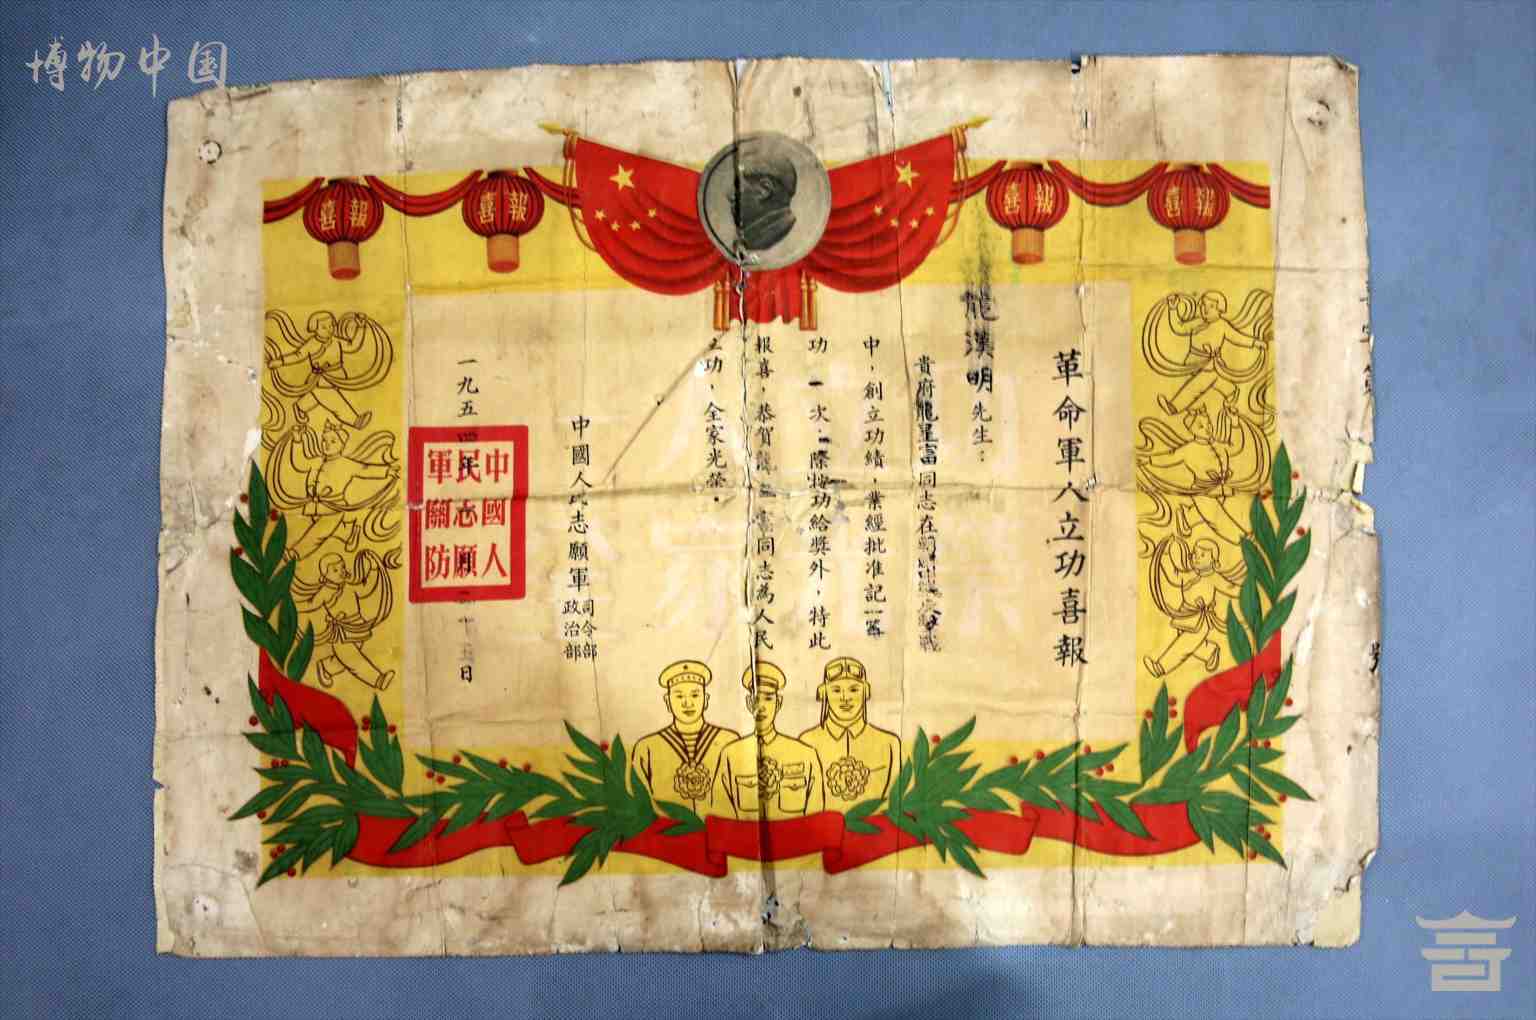 博物中国
喜報
喜報
喜報
喜報
革命軍人立功喜報
龍漢明先生：
貴府龍呈富同志在
中，創立功績，業經批准記一等
功一次．除按功給獎外，特此
報喜，恭賀龍富同志為人民
立功，全家光榮．
中國人民志願軍
司令部
政治部
一九五四年月二十五日
中國人
民志願
軍關防